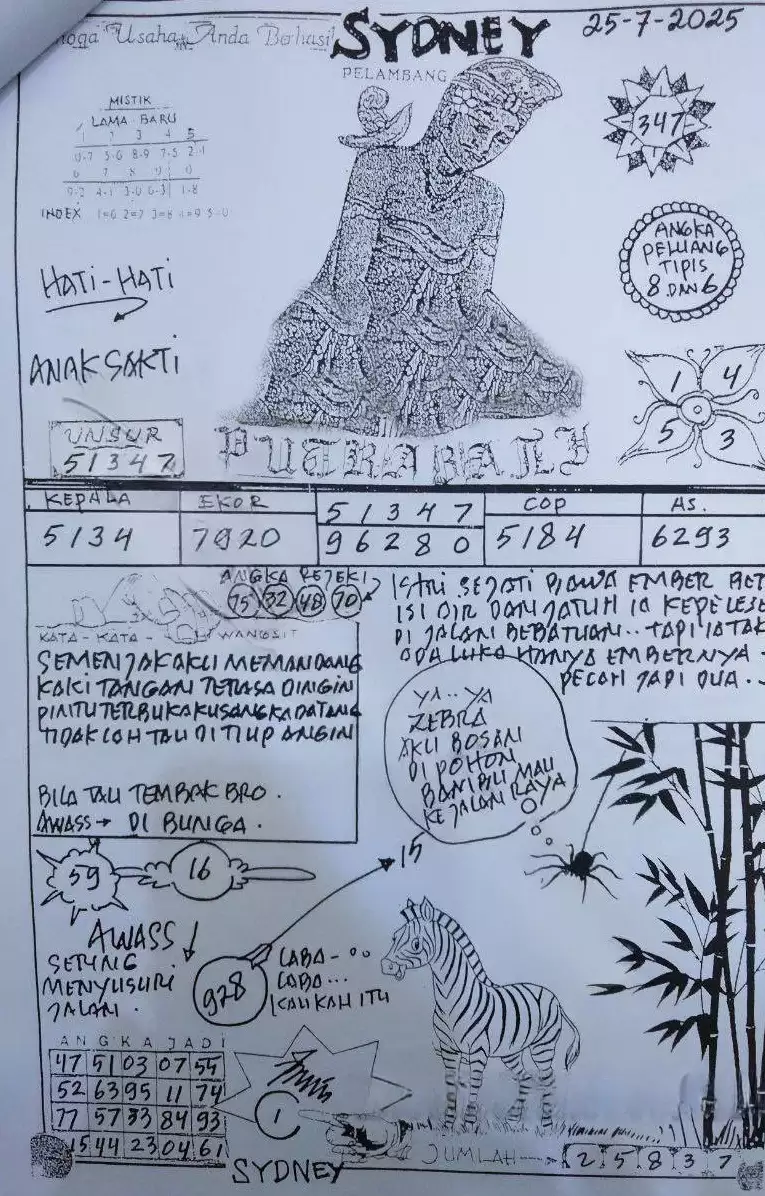 Usaha Anda Berhasil
SYDNEY
25-7-2025
PELAMBANG
MISTIK
LAMA BARU
3 4 5
0-7 5-6 8-9 7-5 2-1
6 7 8 9 0
9-2 4-1 3-0 6-3 1-8
INDEX 1=6 2=7 3=8 4=9 5=0
347
ANGKA
PELUANG
TIPIS
8 DAN 6
HATI-HATI
ANAK SAKTI
1 4
5 3
UNSUR
51347
PUTRABALI
KEPALA
5134
EKOR
7920
51347
96280
COP
5184
AS.
6293
ANGKA REJEKI
75 32 48 70
KATA-KATA WANGSIT
SEMENJAK AKU MEMANDANG
KAKI TANGAN TERASA DINGIN
PINTU TERBUKA KUSANGKA DATANG
TIDAK LAH TAU DI TIUP ANGIN
BILA TAU TEMBAK BRO.
AWASS → DI BUNGA.
ISTRI SEJATI BAWA EMBER BET
ISI AIR DAN JATUH IA KEPELESE
DI JALAN BEBATUAN.. TAPI IA TAK
ADA LUKA HANYA EMBERNYA
PECAH JADI DUA..
YA..YA
ZEBRA
AKU BOSAN
DI POHON
BAMBU MAU
KE JALAN RAYA
59
16
15
AWASS
SERING
MENYUSURI
JALAN.
928
LABA-
LABA...
KAUKAH ITU
ANGKA JADI
47 51 03 07 55
52 63 95 11 74
77 57 33 84 93
15 44 23 04 61
1
SYDNEY
JUMLAH 2 5 8 3 7